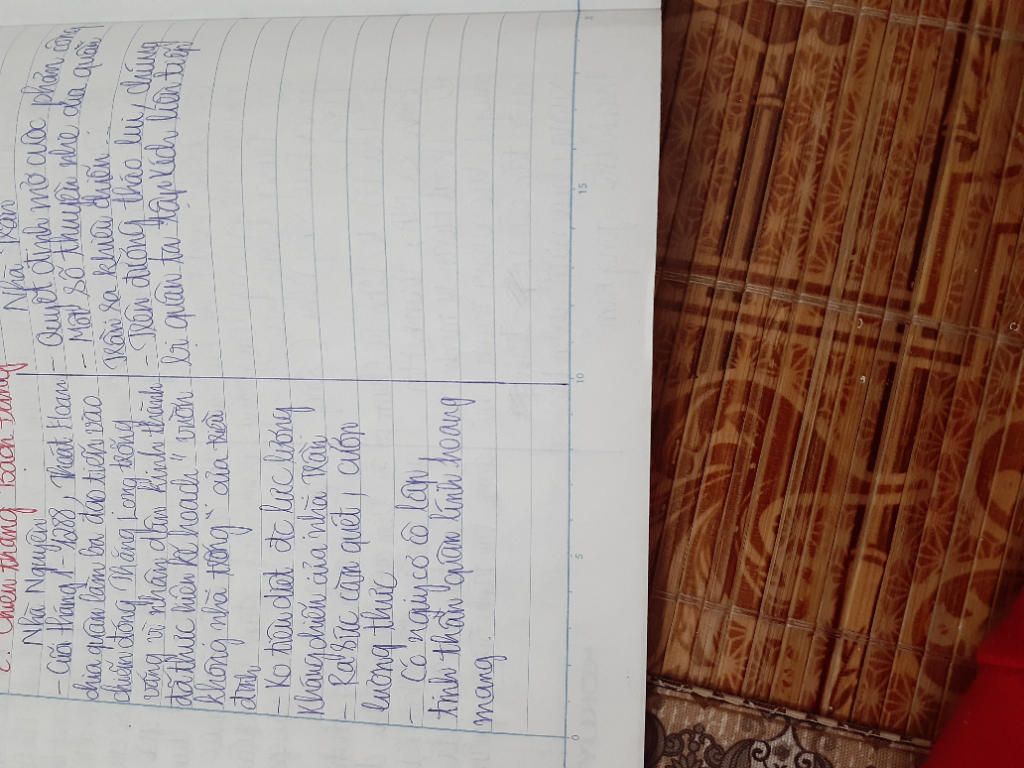 2. Chiến thắng Bạch Đằng
Nhà Nguyên
- Cuối tháng 1-1288, Thoát Hoan
chia quân làm ba đạo tiến vào
chiếm đóng Thăng Long trống
vắng vì nhân dân kinh thành
đã thực hiện kế hoạch "vườn
không nhà trống" của triều
đình
- Ko tiêu diệt đc lực lượng
kháng chiến của nhà Trần
- Ra sức càn quét, cướp
lương thực
- Có nguy cơ cô lập
tinh thần quân lính hoang
mang.
Nhà Trần
- Quyết định mở cuộc phản công
- Một số thuyền nhẹ của quân
Trần ra khiêu chiến
- Trần đường tháo lui, chúng
bị quân ta tập kích liên tiếp
0 5 10 15